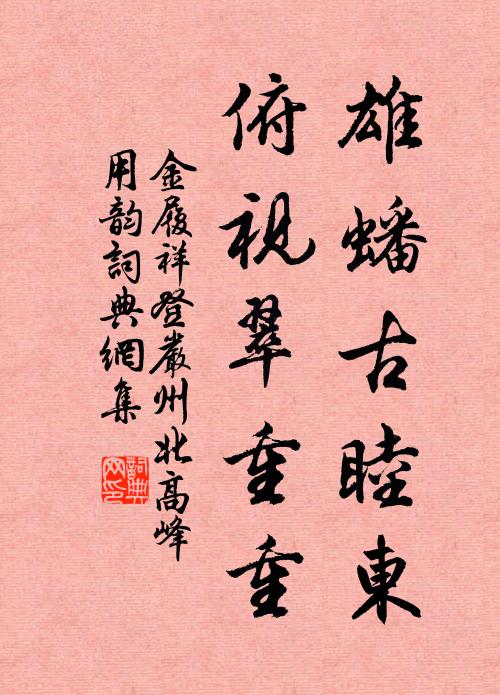 雄蟠古睦東
俯視翠重重
金履祥登嚴州北高峰
用韵詞典網集
詞典網印